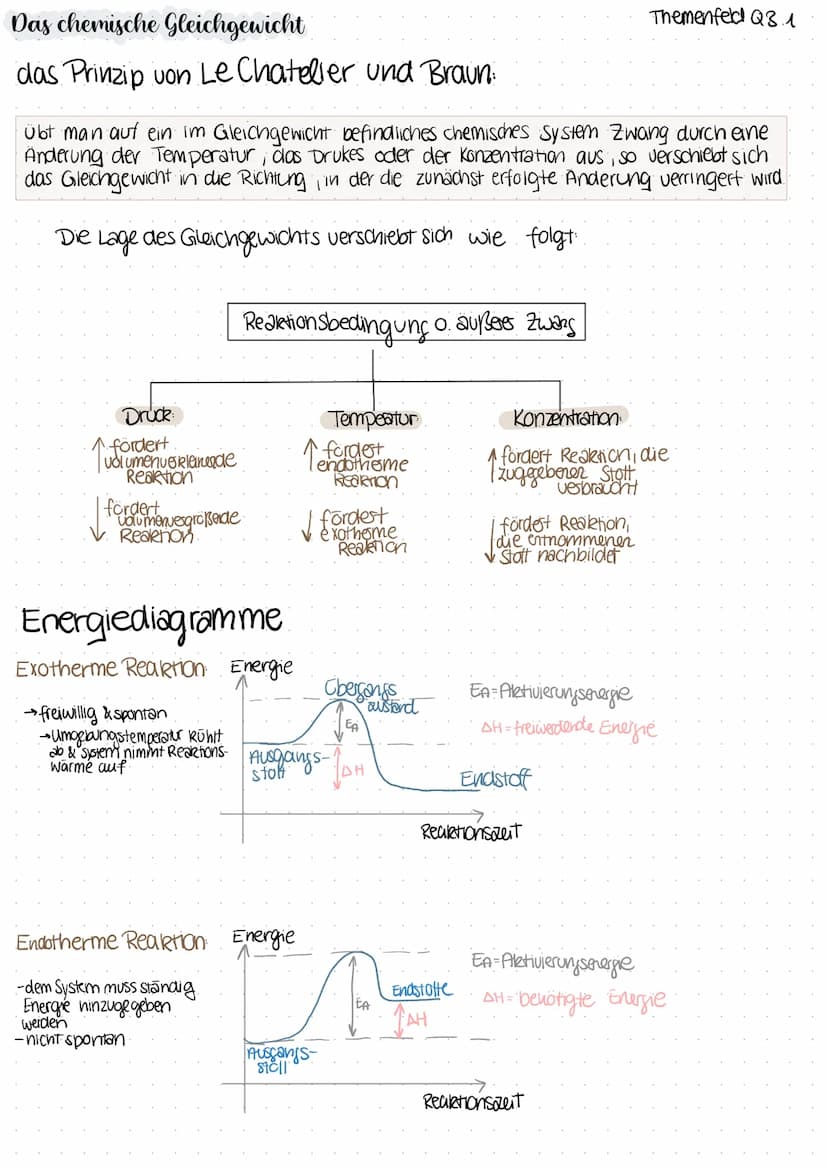 Das chemische Gleichgewicht
Themenfeld Q3.1
das Prinzip von Le Chatelier und Braun:
Übt man auf ein im Gleichgewicht befindliches chemisches System Zwang durch eine
Änderung der Temperatur, das Drukes oder der Konzentration aus, so verschiebt sich
das Gleichgewicht in die Richtung, in der die zunächst erfolgte Änderung verringert wird.
Die Lage des Gleichgewichts verschiebt sich wie folgt:
Reaktionsbedingung o. äußerer Zwang
Druck:
↑ fördert
volumenverkleinernde
Reaktion
↓ fördert
volumenvergrößernde
Reaktion
Temperatur:
↑ fördert
endotherme
Reaktion
↓ fördert
exotherme
Reaktion
Konzentration:
↑ fördert Reaktion, die
zuggebener Stoff
verbraucht
↓ fördert Reaktion,
die entnommenen
Stoff nachbildet
Energiediagramme
Exotherme Reaktion:
→ freiwillig & spontan
→ Umgebungstemperatur kühlt
ab & System nimmt Reaktions-
wärme auf
Energie
Übergangs
zustand
EA
Ausgangs-
stoff
ΔH
Endstoff
Reaktionszeit
EA = Aktivierungsenergie
ΔH = freiwerdende Energie
Endotherme Reaktion:
-dem System muss ständig
Energie hinzugegeben
werden
-nicht spontan
Energie
EA
Endstoffe
ΔH
Ausgangs-
stoff
Reaktionszeit
EA = Aktivierungsenergie
ΔH = benötigte Energie